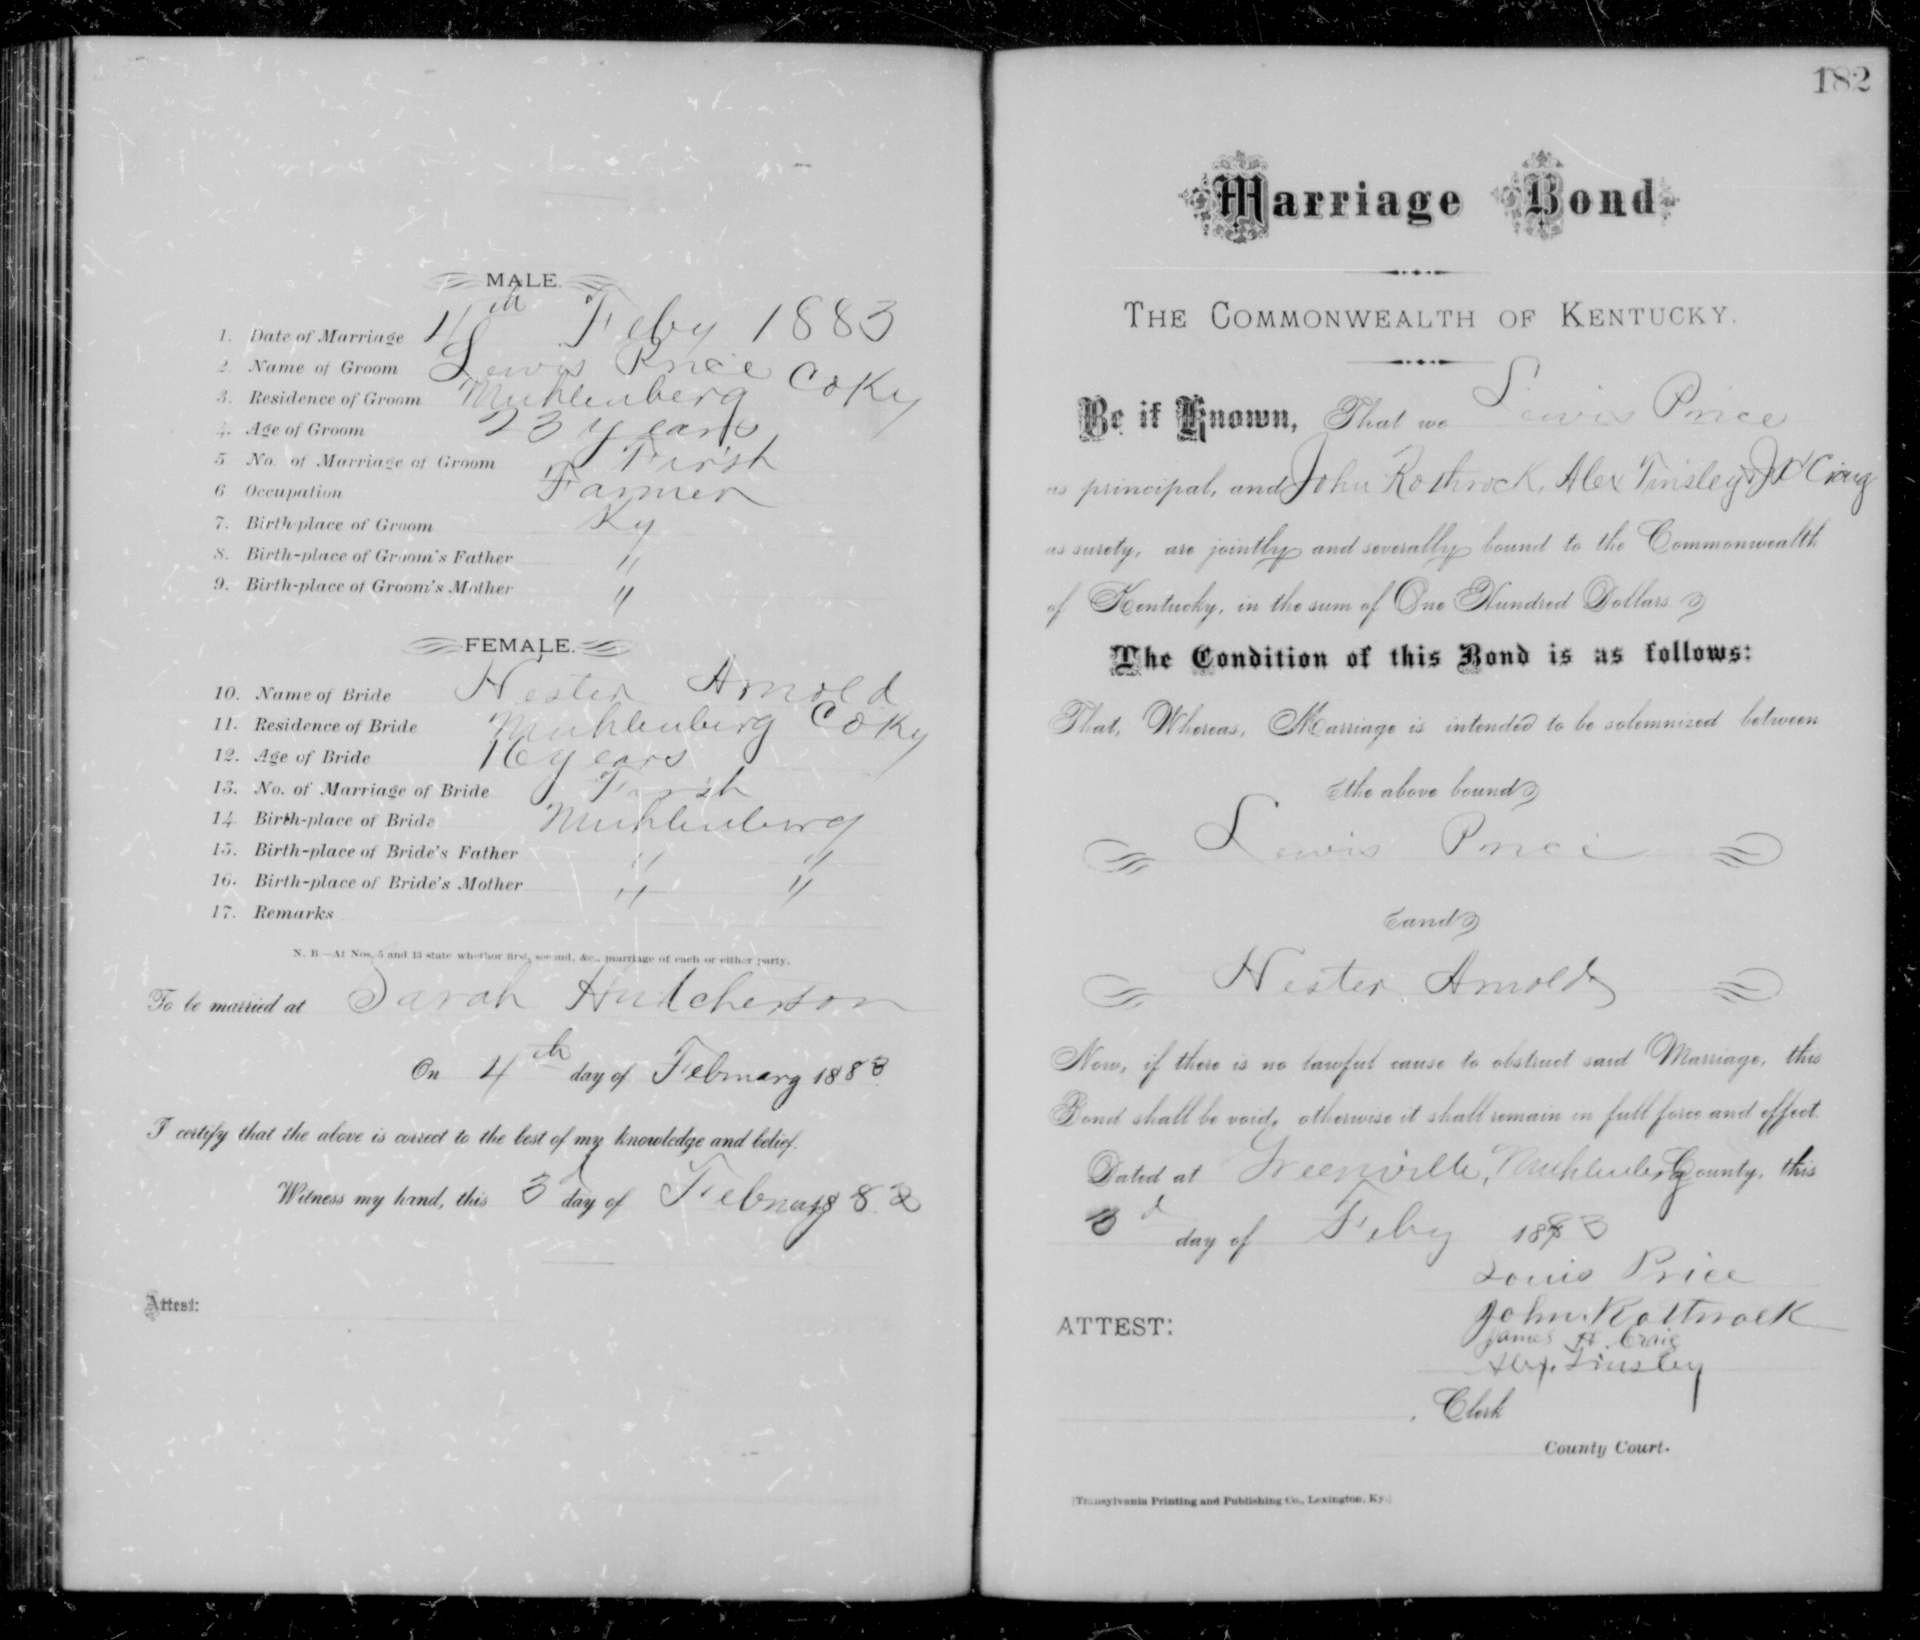 MALE.
1. Date of Marriage 4th Feby 1883
2. Name of Groom Lewis Price
3. Residence of Groom Muhlenberg Co Ky
4. Age of Groom 23 years
5 No. of Marriage of Groom First
6 Occupation Farmer
7. Birth-place of Groom Ky
8. Birth-place of Groom's Father "
9. Birth-place of Groom's Mother "
FEMALE.
10. Name of Bride Hester Arnold
11. Residence of Bride Muhlenberg Co Ky
12. Age of Bride 16 years
13. No. of Marriage of Bride First
14 Birth-place of Bride Muhlenberg
15. Birth-place of Bride's Father " "
16. Birth-place of Bride's Mother " "
17. Remarks
N. B—At Nos. 5 and 13 state whether first, second, &c., marriage of each or either party.
To be married at Sarah Hutcherson
On 4th day of February 1883
I certify that the above is correct to the best of my knowledge and belief.
Witness my hand, this 3d day of February 188
Attest:
182
Marriage Bond
THE COMMONWEALTH OF KENTUCKY.
Be it Known, That we Lewis Price
as principal, and John Rothrock, Alex Tinsley & J H Craig
as surety, are jointly and severally bound to the Commonwealth
of Kentucky, in the sum of One Hundred Dollars.
The Condition of this Bond is as follows:
That, Whereas, Marriage is intended to be solemnized between
the above bound
Lewis Price
and
Hester Arnold
Now, if there is no lawful cause to obstruct said Marriage, this
Bond shall be void, otherwise it shall remain in full force and effect.
Dated at Greenville, Muhlenberg County, this
3d day of Feby 1883
Louis Price
John Rothrock
James H. Craig
Alex. Tinsley
ATTEST:
, Clerk
County Court.
[Transylvania Printing and Publishing Co., Lexington, Ky.]